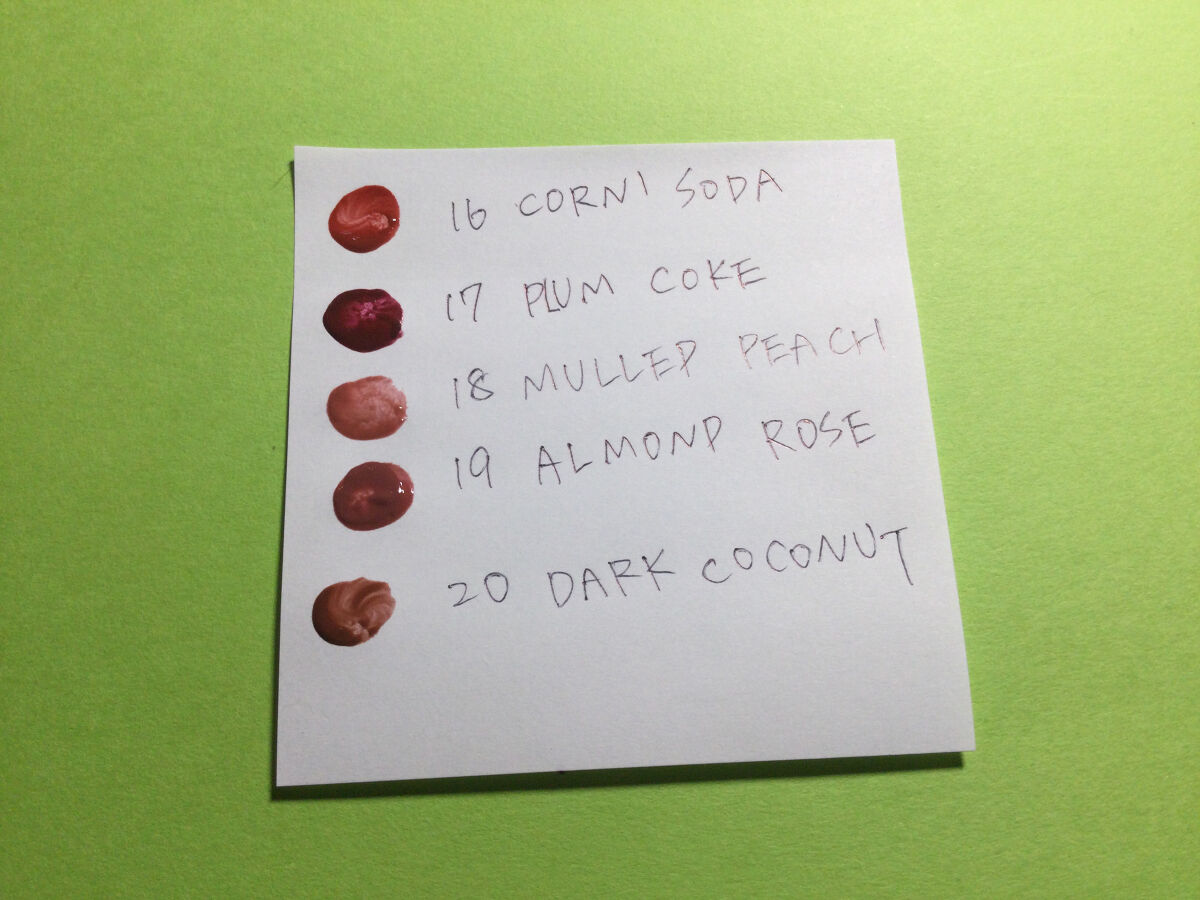 16 CORNI SODA
17 PLUM COKE
18 MULLED PEACH
19 ALMOND ROSE
20 DARK COCONUT